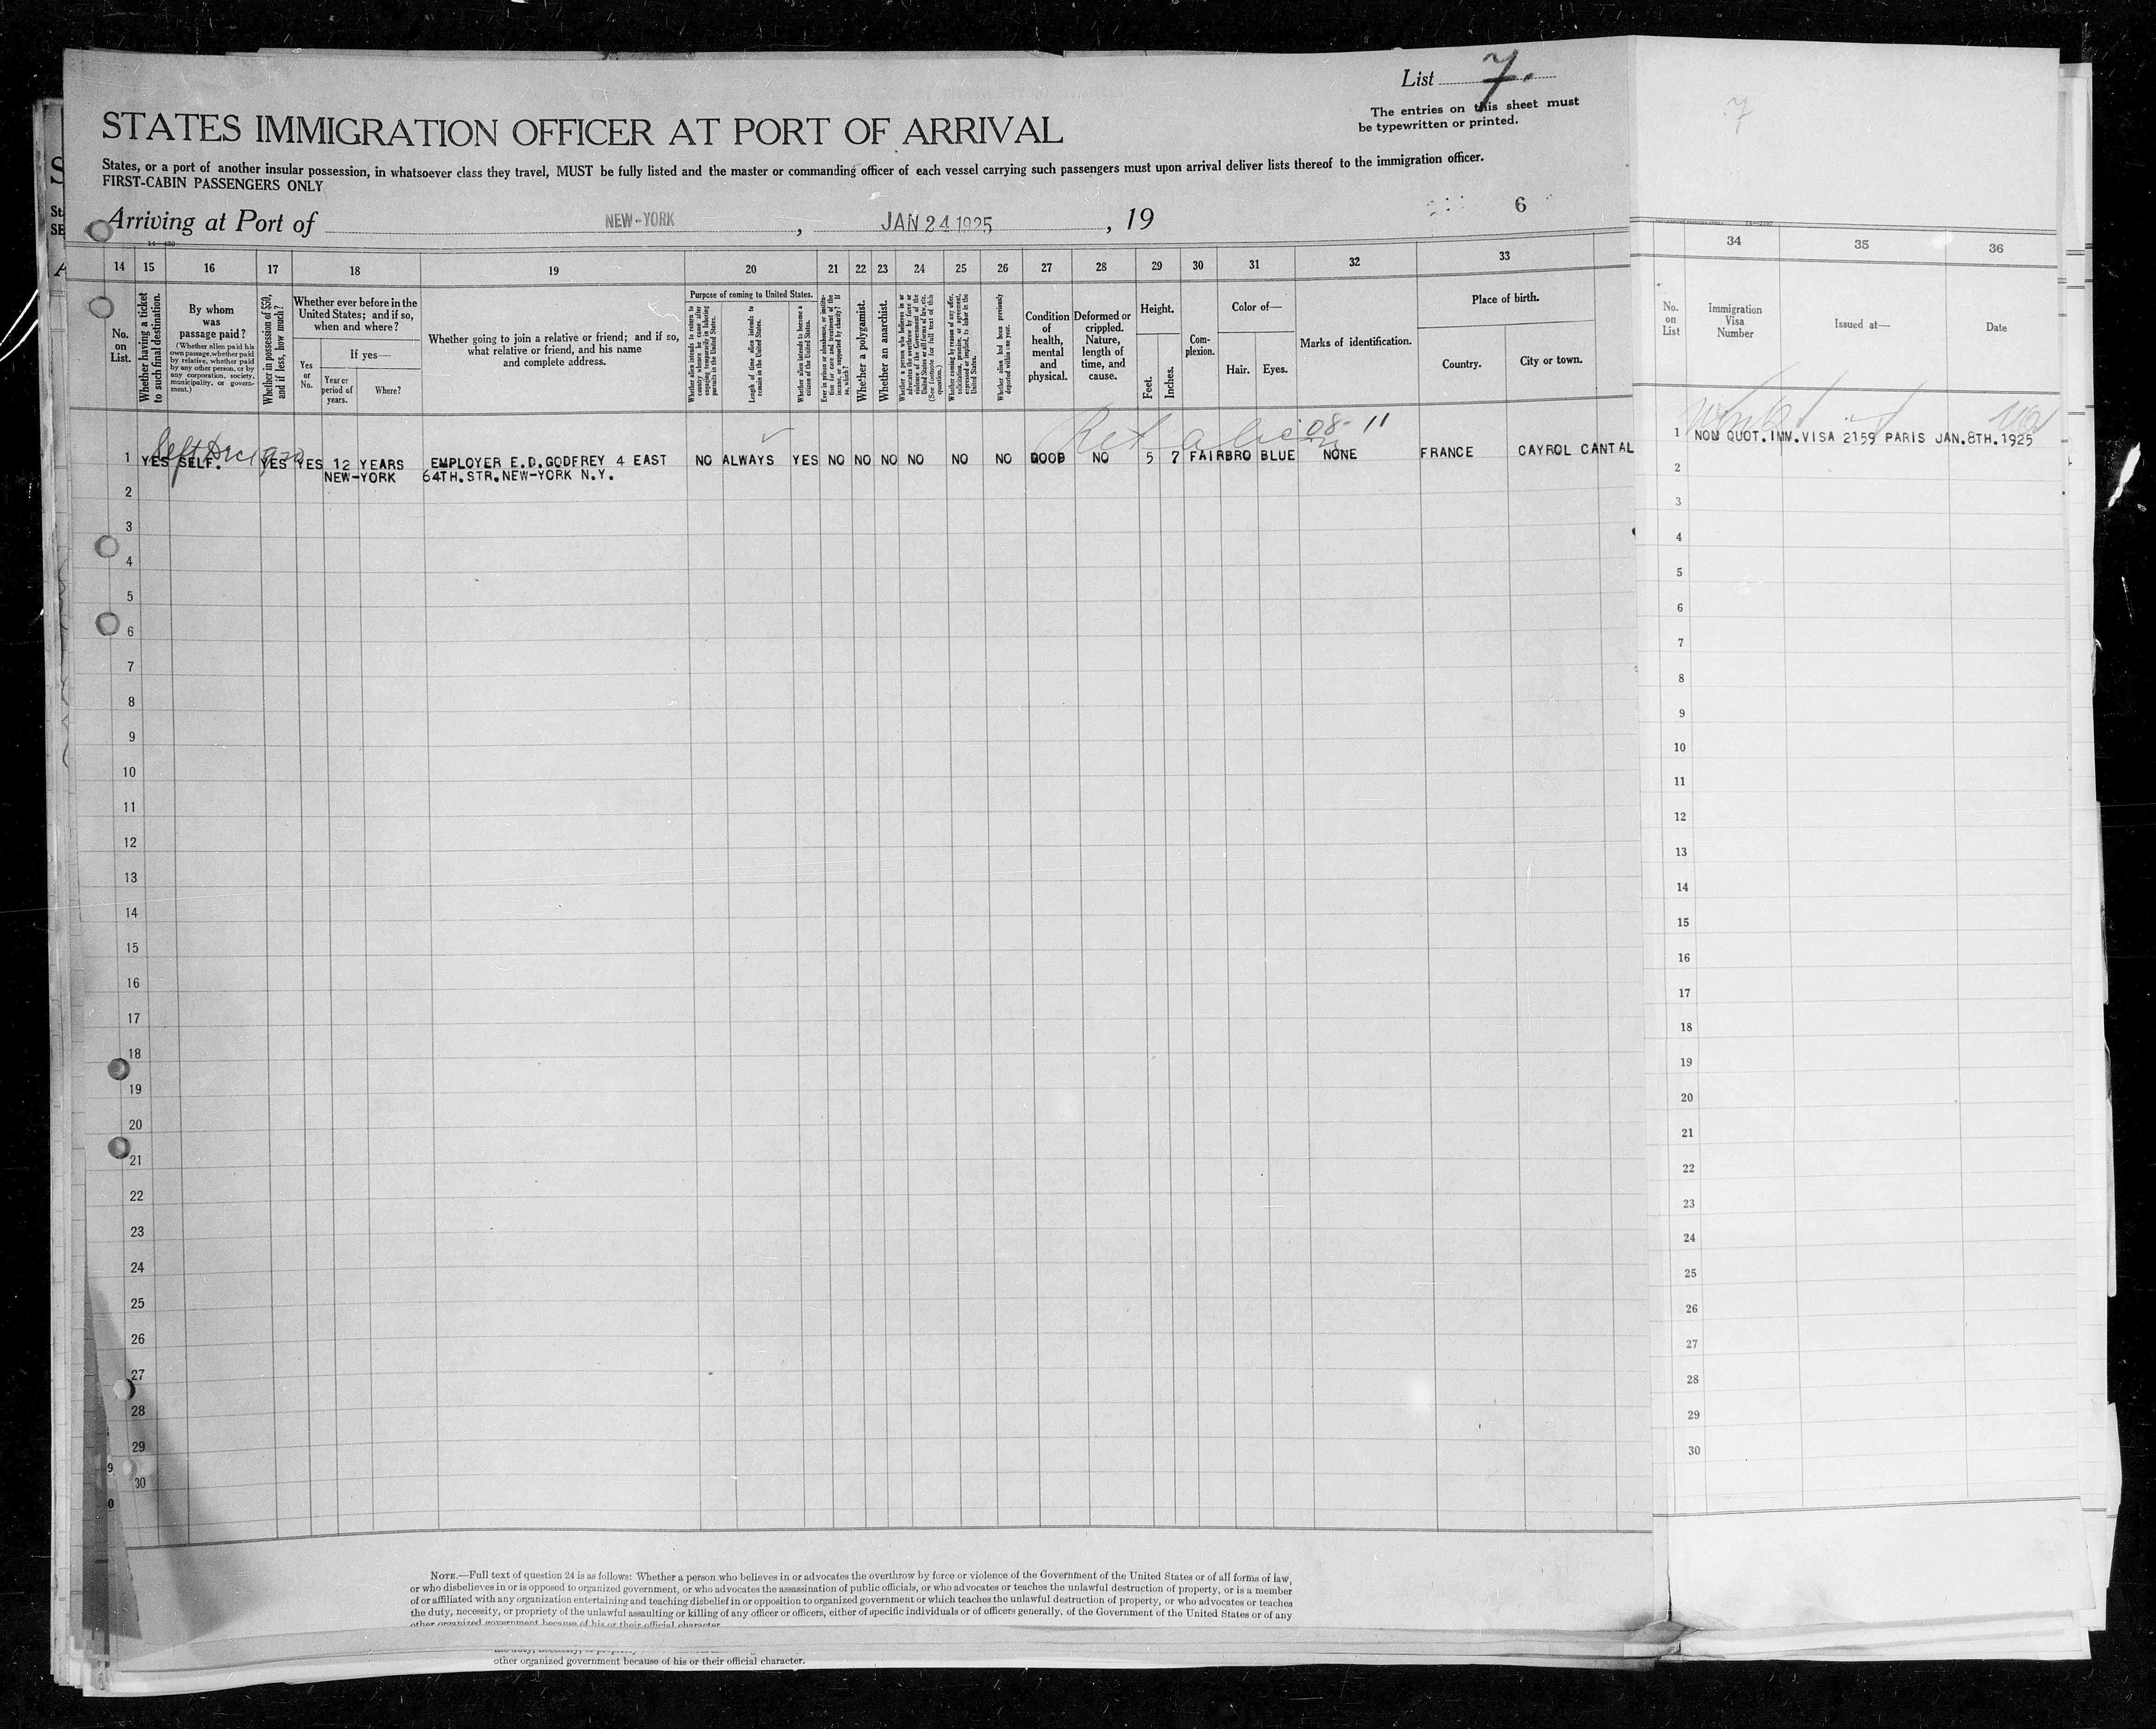 List 7.
The entries on this sheet must
be typewritten or printed.
STATES IMMIGRATION OFFICER AT PORT OF ARRIVAL
States, or a port of another insular possession, in whatsoever class they travel, MUST be fully listed and the master or commanding officer of each vessel carrying such passengers must upon arrival deliver lists thereof to the immigration officer.
FIRST-CABIN PASSENGERS ONLY
Arriving at Port of NEW-YORK, JAN 24 1925, 19
6
7
14 15 16 17 18 19 20 21 22 23 24 25 26 27 28 29 30 31 32 33 34 35 36
No. on List.
Whether having a ticket to such final destination.
By whom was passage paid?
(Whether alien paid his own passage, whether paid by relative, whether paid by any other person, or by any corporation, society, municipality, or government.)
Whether in possession of $50, and if less, how much?
Whether ever before in the United States; and if so, when and where?
Yes or No.
If yes—
Year or period of years.
Where?
Whether going to join a relative or friend; and if so, what relative or friend, and his name and complete address.
Purpose of coming to United States.
Whether alien intends to return to country whence he came after engaging temporarily in laboring pursuits in the United States.
Length of time alien intends to remain in the United States.
Whether alien intends to become a citizen of the United States.
Ever in prison or almshouse, or institution for care and treatment of the insane, or supported by charity? If so, which?
Whether a polygamist.
Whether an anarchist.
Whether a person who believes in or advocates the overthrow by force or violence of the Government of the United States or all forms of law, etc. (See footnote for full text of this question.)
Whether coming by reason of any offer, solicitation, promise, or agreement, expressed or implied, to labor in the United States.
Whether alien had been previously deported within one year.
Condition of health, mental and physical.
Deformed or crippled. Nature, length of time, and cause.
Height.
Feet.
Inches.
Complexion.
Color of—
Hair.
Eyes.
Marks of identification.
Place of birth.
Country.
City or town.
No. on List
Immigration Visa Number
Issued at—
Date
08-11
1 YES SELF. YES YES 12 YEARS EMPLOYER E.D.GODFREY 4 EAST NO ALWAYS YES NO NO NO NO NO NO GOOD NO 5 7 FAIR BRO BLUE NONE FRANCE CAYROL CANTAL
NEW-YORK 64TH.STR.NEW-YORK N.Y.
1 NON QUOT.IMM.VISA 2159 PARIS JAN.8TH.1925
2 2
3 3
4 4
5 5
6 6
7 7
8 8
9 9
10 10
11 11
12 12
13 13
14 14
15 15
16 16
17 17
18 18
19 19
20 20
21 21
22 22
23 23
24 24
25 25
26 26
27 27
28 28
29 29
30 30
NOTE.—Full text of question 24 is as follows: Whether a person who believes in or advocates the overthrow by force or violence of the Government of the United States or of all forms of law,
or who disbelieves in or is opposed to organized government, or who advocates the assassination of public officials, or who advocates or teaches the unlawful destruction of property, or is a member
of or affiliated with any organization entertaining and teaching disbelief in or opposition to organized government or which teaches the unlawful destruction of property, or who advocates or teaches
the duty, necessity, or propriety of the unlawful assaulting or killing of any officer or officers, either of specific individuals or of officers generally, of the Government of the United States or of any
other organized government because of his or their official character
other organized government because of his or their official character.